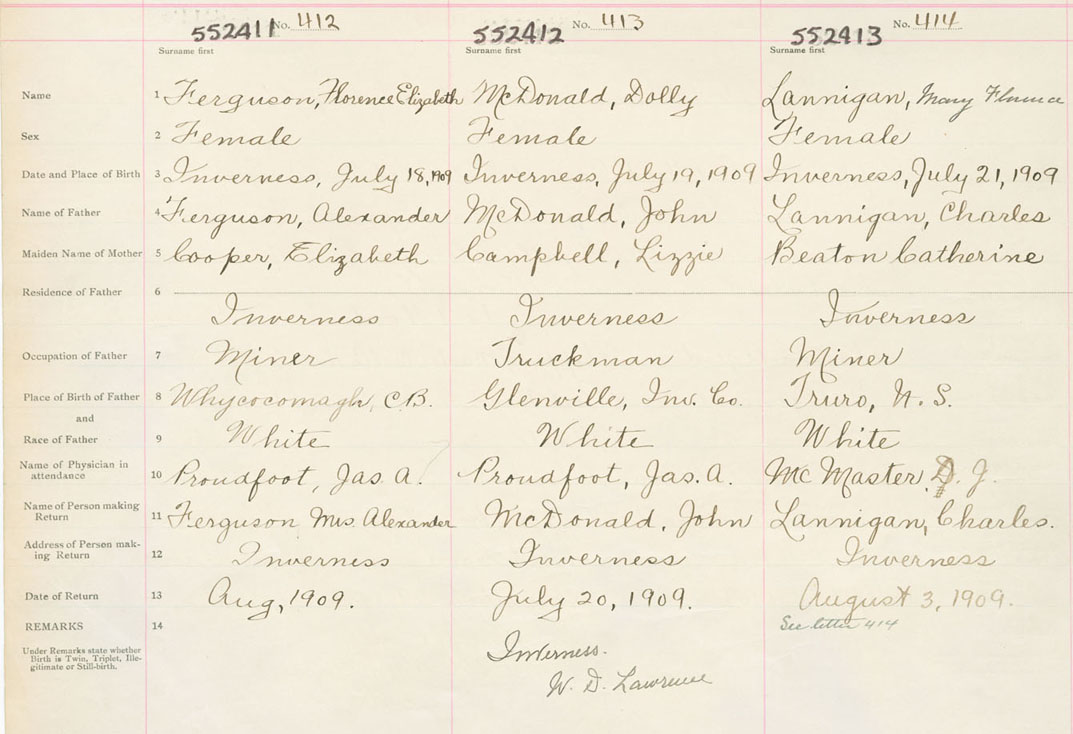 552411 No. 412 552412 No. 413 552413 No. 414
Surname first Surname first Surname first
Name 1 Ferguson, Florence Elizabeth McDonald, Dolly Lannigan, Mary Florence
Sex 2 Female Female Female
Date and Place of Birth 3 Inverness, July 18, 1909 Inverness, July 19, 1909 Inverness, July 21, 1909
Name of Father 4 Ferguson, Alexander McDonald, John Lannigan, Charles
Maiden Name of Mother 5 Cooper, Elizabeth Campbell, Lizzie Beaton Catherine
Residence of Father 6
Inverness Inverness Inverness
Occupation of Father 7 Miner Truckman Miner
Place of Birth of Father 8 Whycocomagh, C.B. Glenville, Inv. Co. Truro, N.S.
and
Race of Father 9 White White White
Name of Physician in
attendance 10 Proudfoot, Jas. A. Proudfoot, Jas. A. McMaster, D. J.
Name of Person making
Return 11 Ferguson Mrs. Alexander McDonald, John Lannigan, Charles.
Address of Person mak-
ing Return 12 Inverness Inverness Inverness
Date of Return 13 Aug, 1909. July 20, 1909. August 3, 1909.
REMARKS 14 See letter 414
Under Remarks state whether
Birth is Twin, Triplet, Ille-
gitimate or Still-birth.
Inverness.
W. D. Lawrence